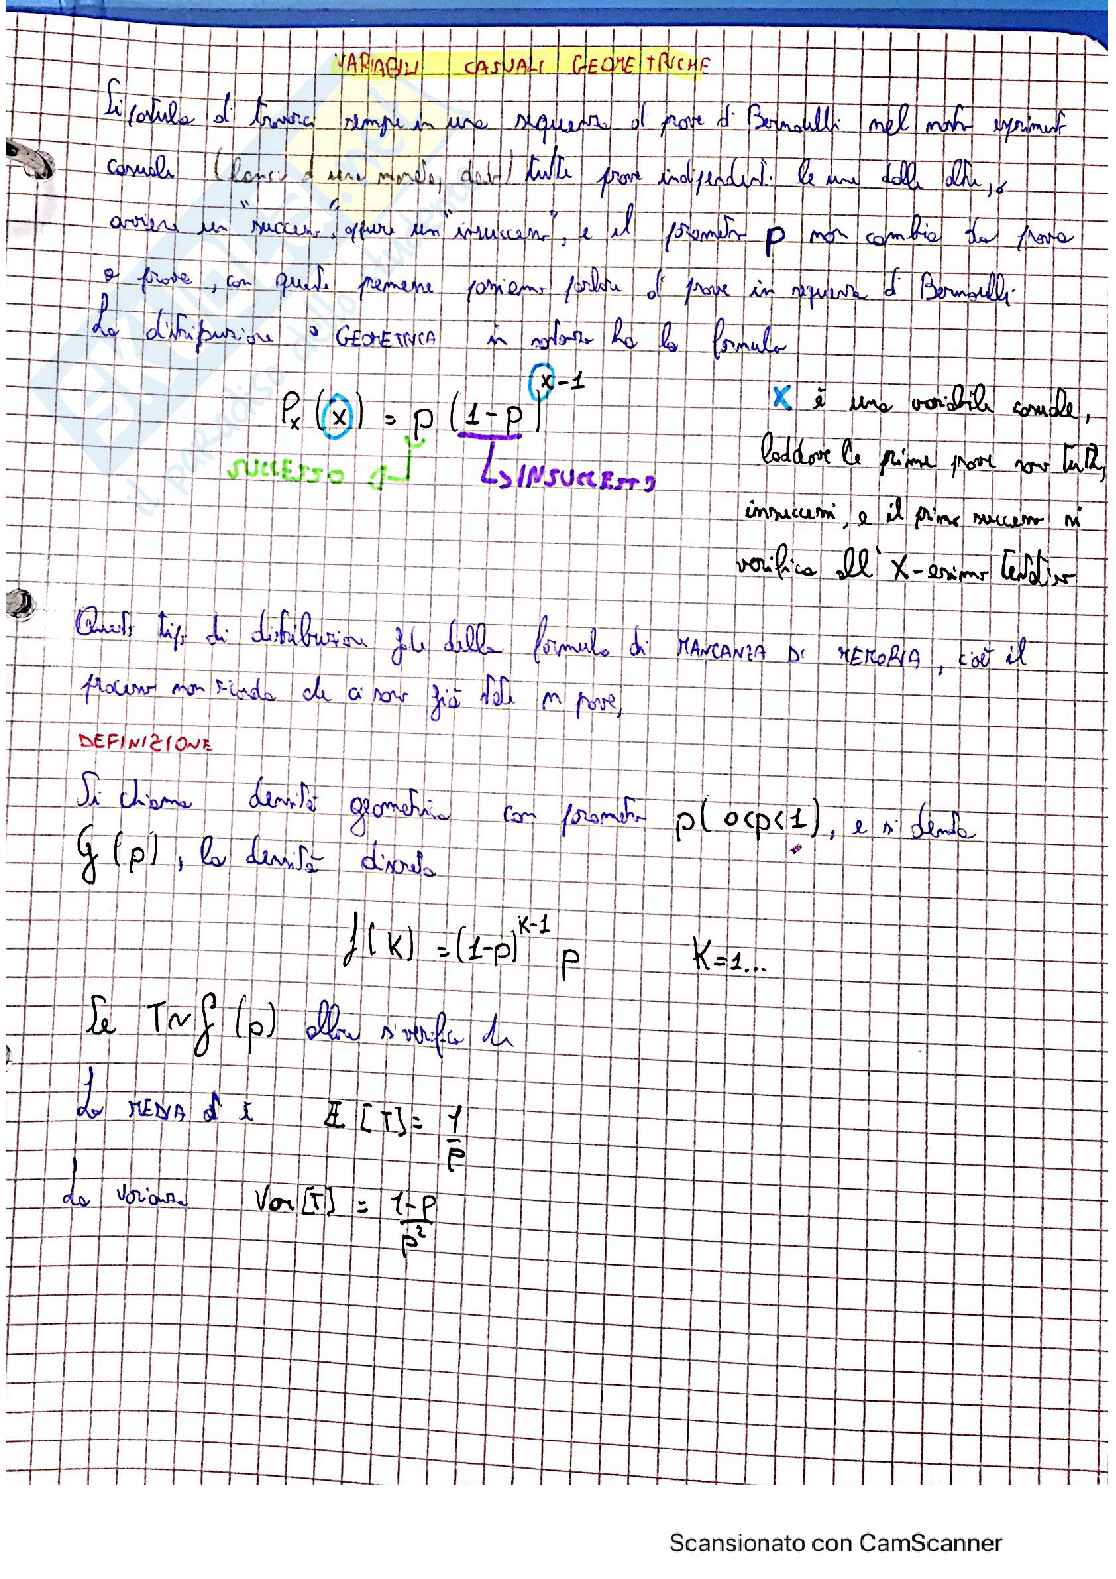 VARIABILI CASUALI GEOMETRICHE
Si postula di trovarci sempre in una sequenza di prove di Bernoulli nel nostro esperiment
casuale (lanci di una moneta, dadi) tutte prove indipendenti le une dalle altre, o
avviene un "successo", oppure un "insuccesso", e il parametro p non cambia da prova
a prova, con queste premesse possiamo parlare di prove in sequenza di Bernoulli.
La distribuzione è GEOMETRICA in sostanza ha la formula
Px (x) = p (1-p)^x-1
SUCCESSO
INSUCCESSO
X è una variabile casuale,
laddove le prime prove sono tutte
insuccessi, e il primo successo si
verifica all'X-esimo tentativo
Questo tipo di distribuzione della formula di MANCANZA DI MEMORIA, cioè il
processo non ricorda che ci sono già state n prove,
DEFINIZIONE
Si chiama densità geometrica con parametro p(0<p<1), e si denota
G(p), la densità discreta
f(K) = (1-p)^K-1 p K=1...
Se T~G(p) allora si verifica che
La MEDIA di E[T] = 1/p
La varianza Var[T] = 1-p/p²
Scansionato con CamScanner